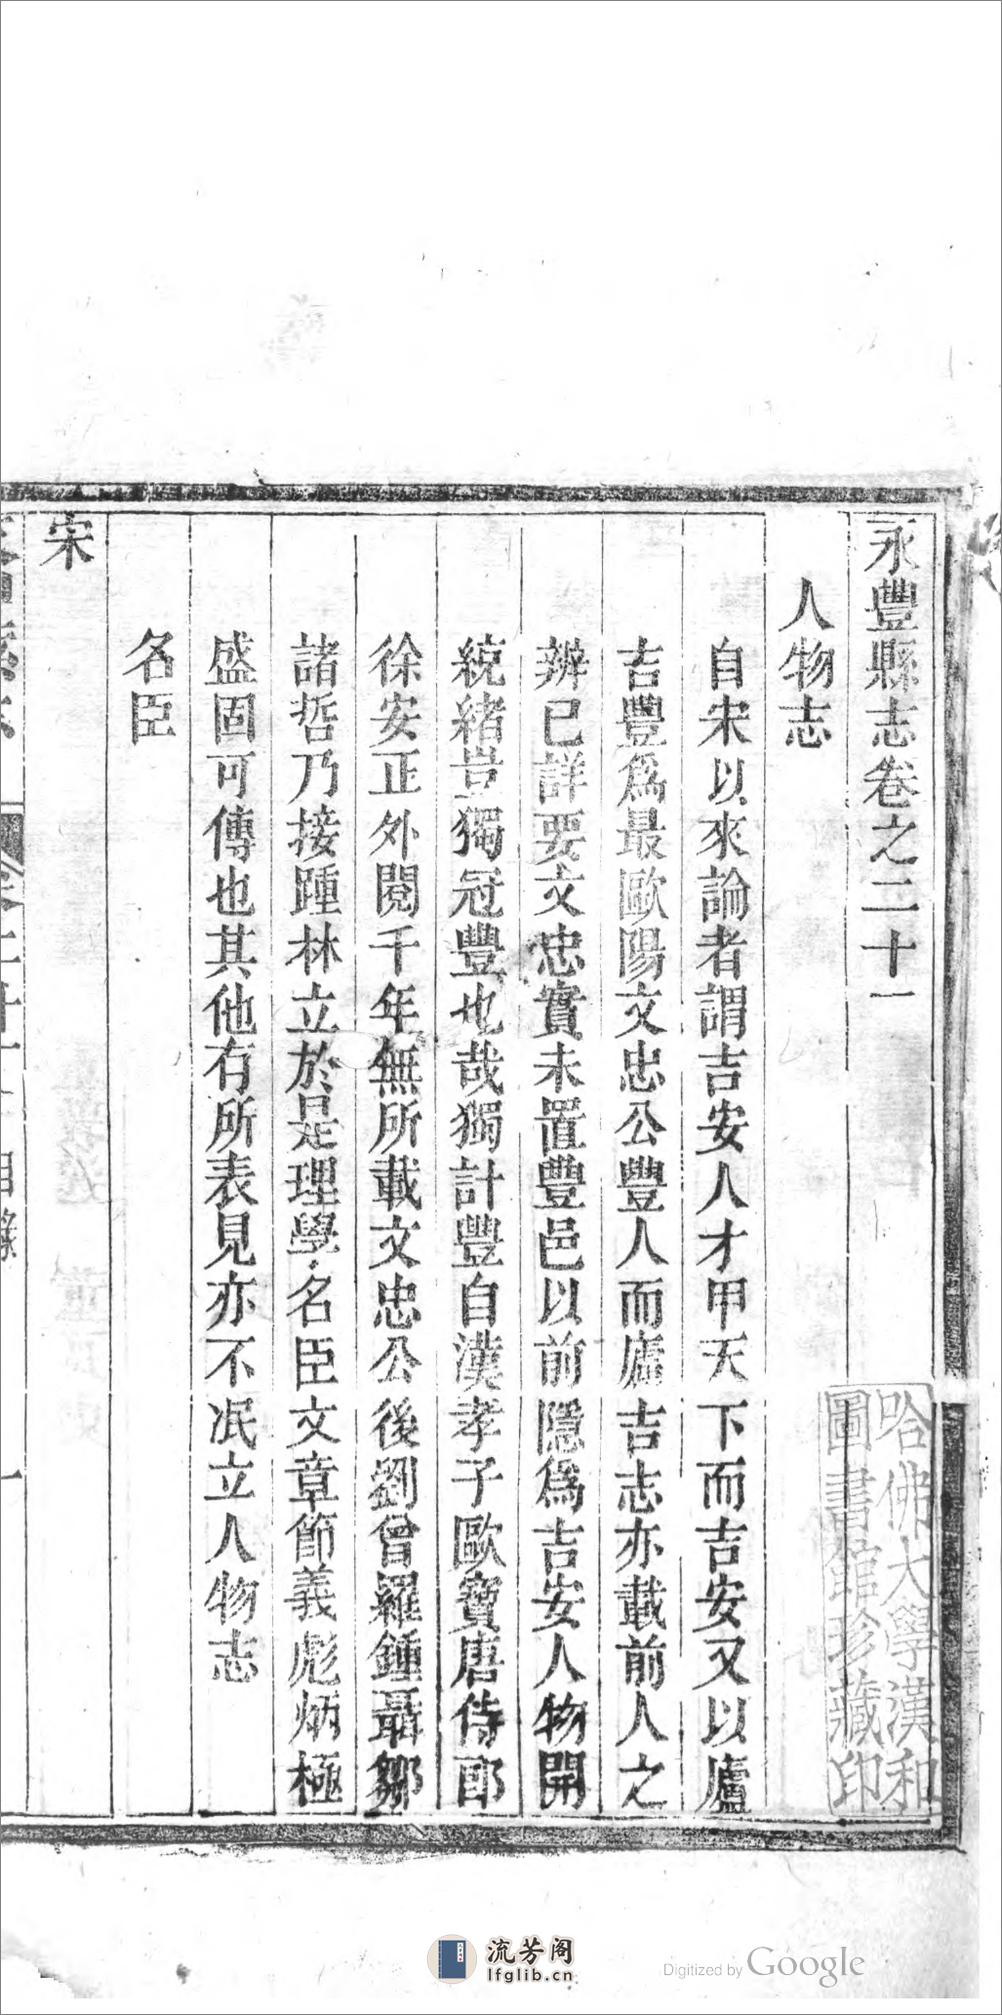 永豐縣志卷之二十一
人物志
自宋以來論者謂吉安人才甲天下而吉安又以廬
吉豐爲最歐陽文忠公豐人而廬吉志亦載前人之
辨已詳要文忠實未置豐邑以前隱爲吉安人物開
統緒豈獨冠豐也哉獨計豐自漢孝子歐寶唐侍郎
徐安正外閱千年無所載文忠公後劉曾羅鍾聶鄒
諸哲乃接踵林立於是理學名臣文章節義彪炳極
盛固可傳也其他有所表見亦不泯立人物志
名臣
宋
哈佛大學漢和
圖書館珍藏印
流芳阁
lfglib.cn
Digitized by Google